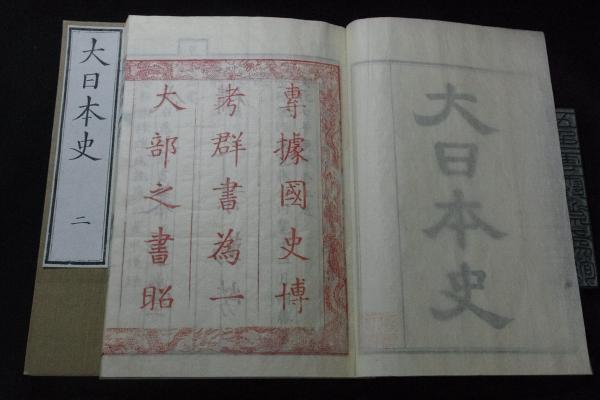 大日本史
專據國史博
考群書為一
大部之書昭
大日本史
二